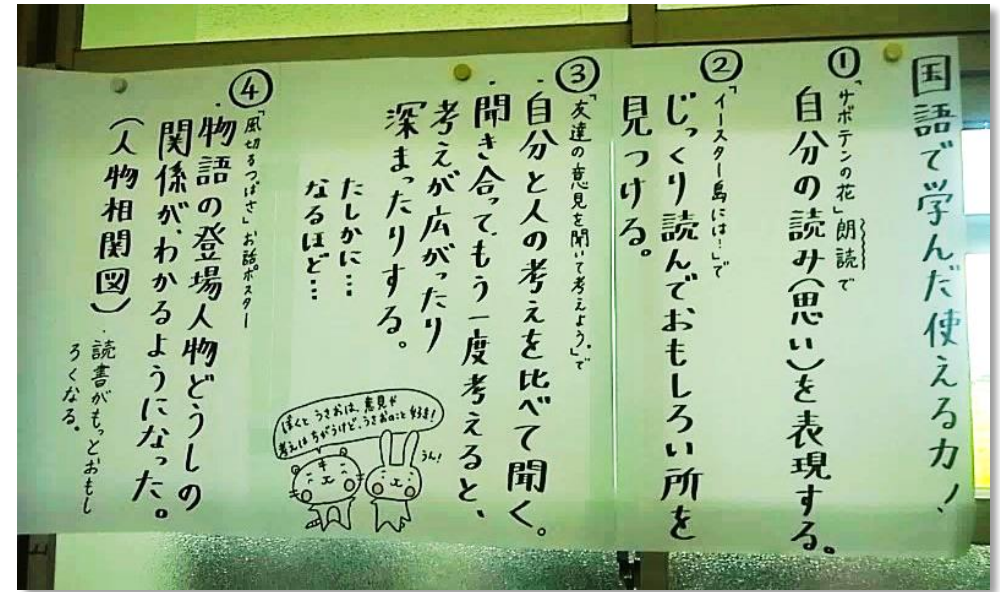 国語で学んだ使えるカ!
①「サボテンの花」朗読で
自分の読み(思い)を表現する。
②「イースター島には…」で
じっくり読んでおもしろい所を
見つける。
③「友達の意見を聞いて考えよう。」で
・自分と人の考えを比べて聞く。
・聞き合って、もう一度考えると、
考えが広がったり
深まったりする。
たしかに…
なるほど…
ぼくと うさおは、意見や
考えはちがうけど、うさおのこと 好き!
うん!
④「風切るつばさ」お話ポスター
・物語の登場人物どうしの
関係が、わかるようになった。
(人物相関図)
・読書がもっとおもし
ろくなる。